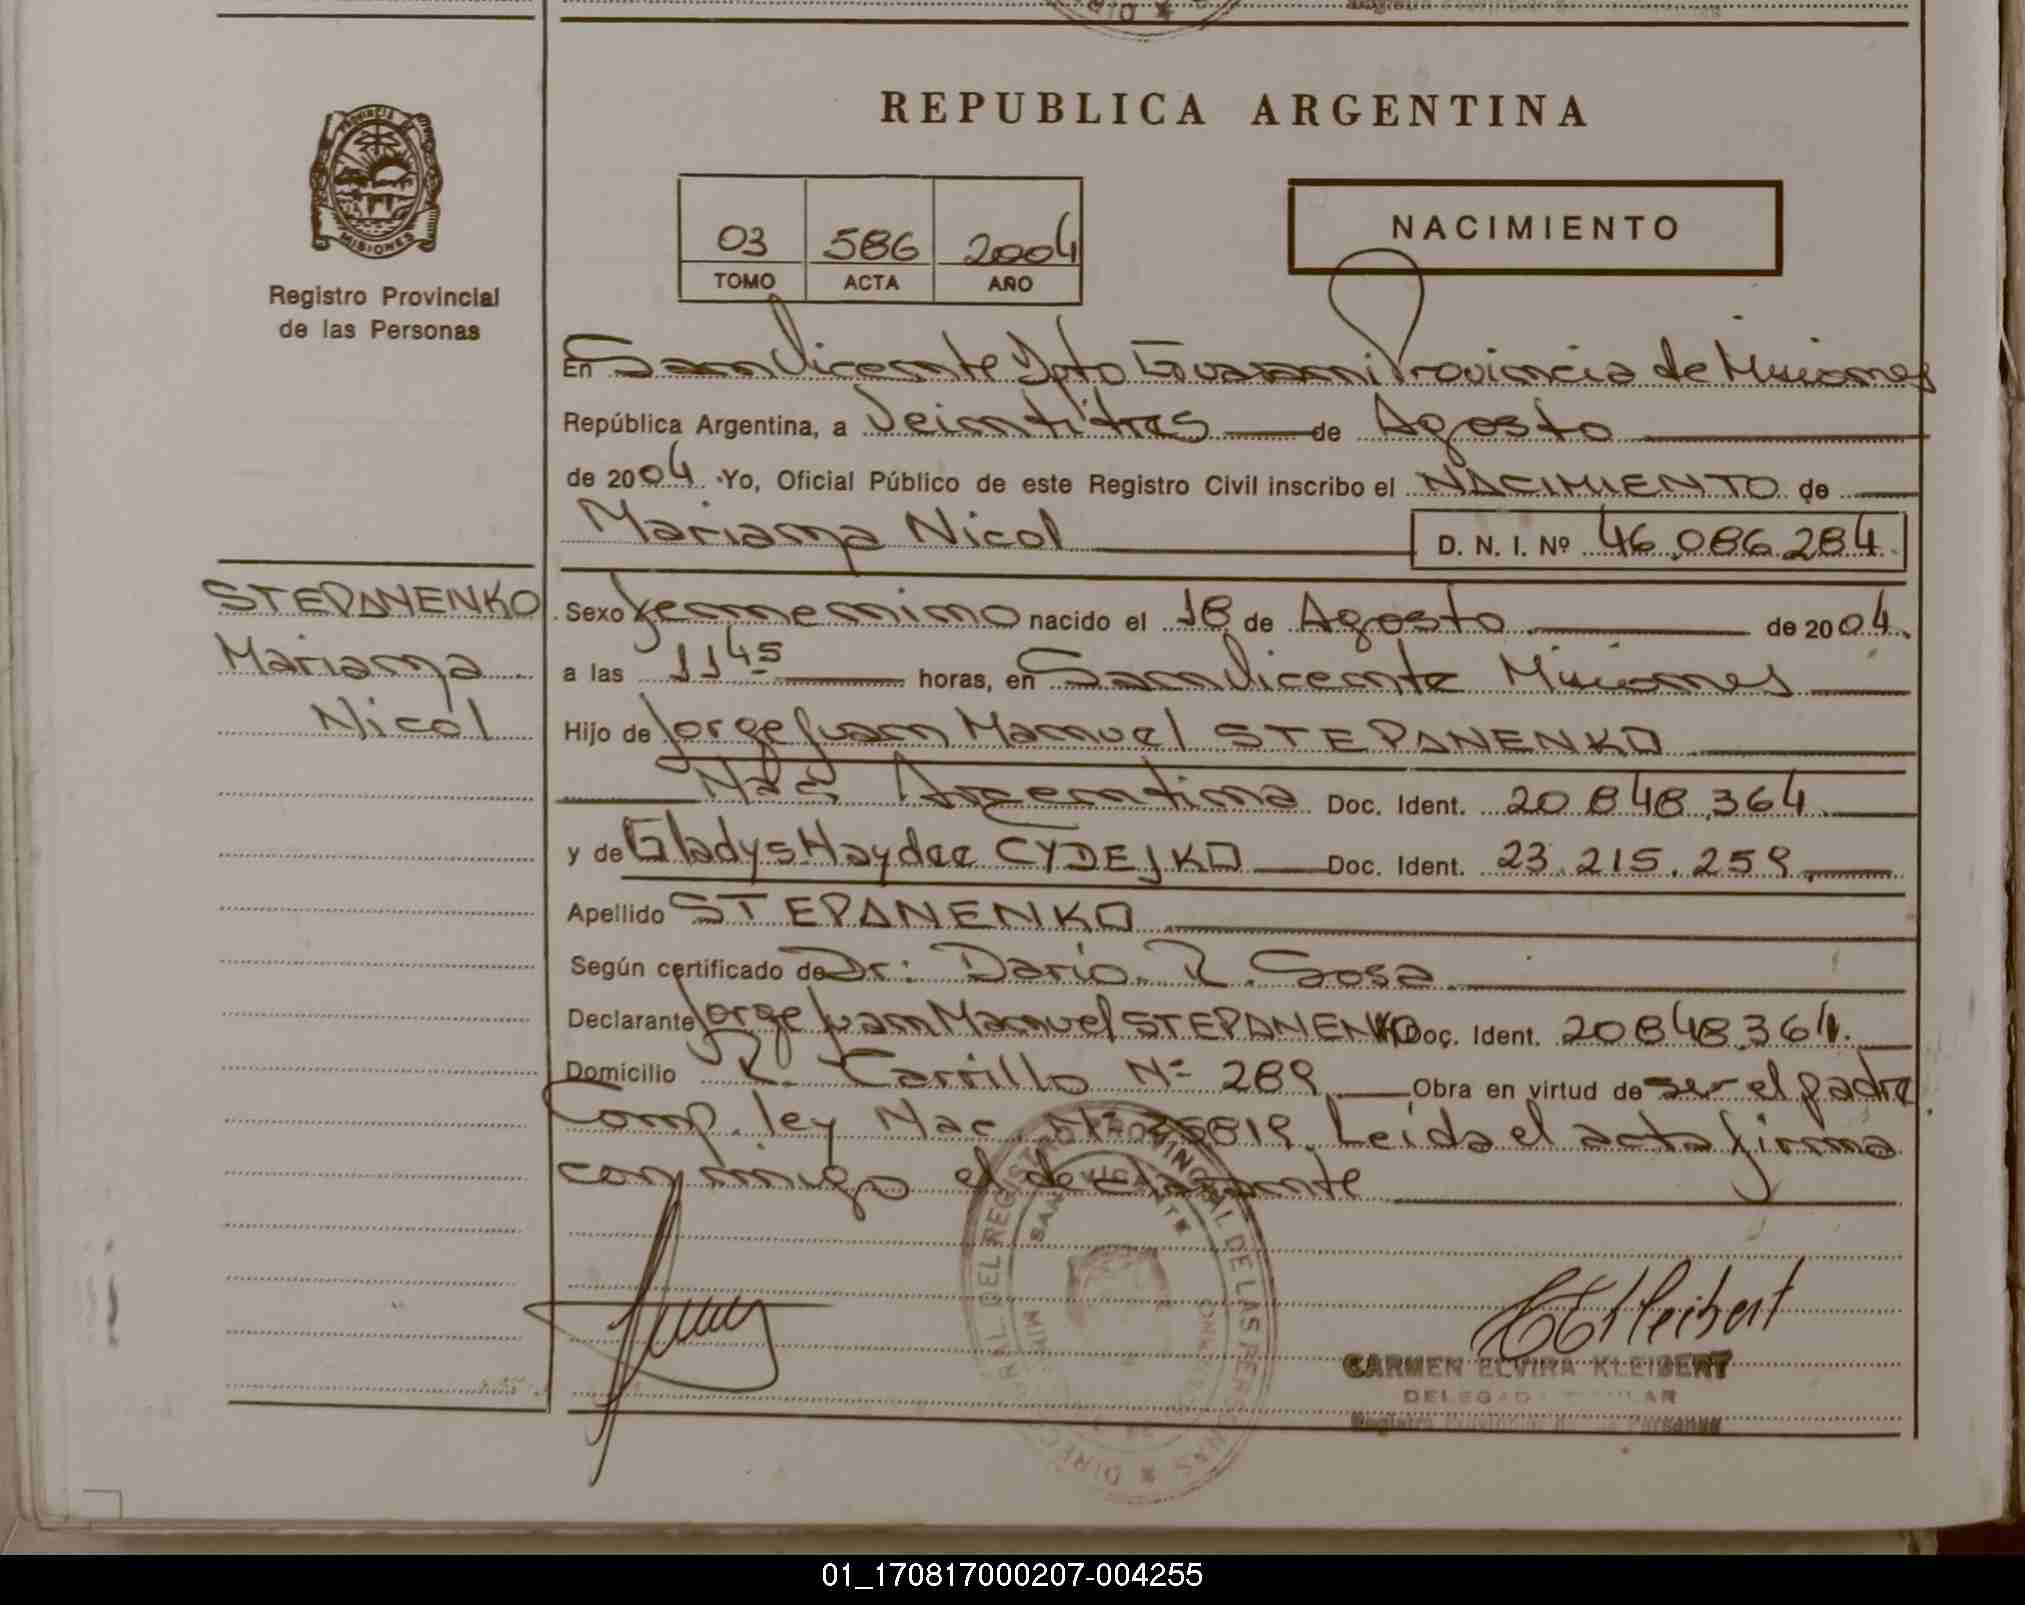 REPUBLICA ARGENTINA
PROVINCIA DE
MISIONES
Registro Provincial
de las Personas
03 586 2004
TOMO ACTA AÑO
NACIMIENTO
En San Vicente Dpto Guarani Provincia de Misiones
República Argentina, a Veintitres de Agosto
de 2004. Yo, Oficial Público de este Registro Civil inscribo el NACIMIENTO de
Mariana Nicol D. N. I. Nº 46.086.284
STEPANENKO
Mariana
Nicol
Sexo femenino nacido el 18 de Agosto de 2004.
a las 11 45 horas, en San Vicente Misiones
Hijo de Jorge Juan Manuel STEPANENKO
Nac. Argentina Doc. Ident. 20.848.364
y de Gladys Haydee CYDEJKO Doc. Ident. 23.215.259
Apellido STEPANENKO
Según certificado de Dr: Dario R. Sosa
Declarante Jorge Juan Manuel STEPANENKO Doc. Ident. 20.848.364.
Domicilio R. Carrillo Nº 289 Obra en virtud de ser el padre
Comp. ley Nac. Leida el acta firma
conmigo el declarante
DEL REGISTRO PROVINCIAL DE LAS PERSONAS
SAN VICENTE
CEKleibert
CARMEN ELVIRA KLEIBERT
01_170817000207-004255